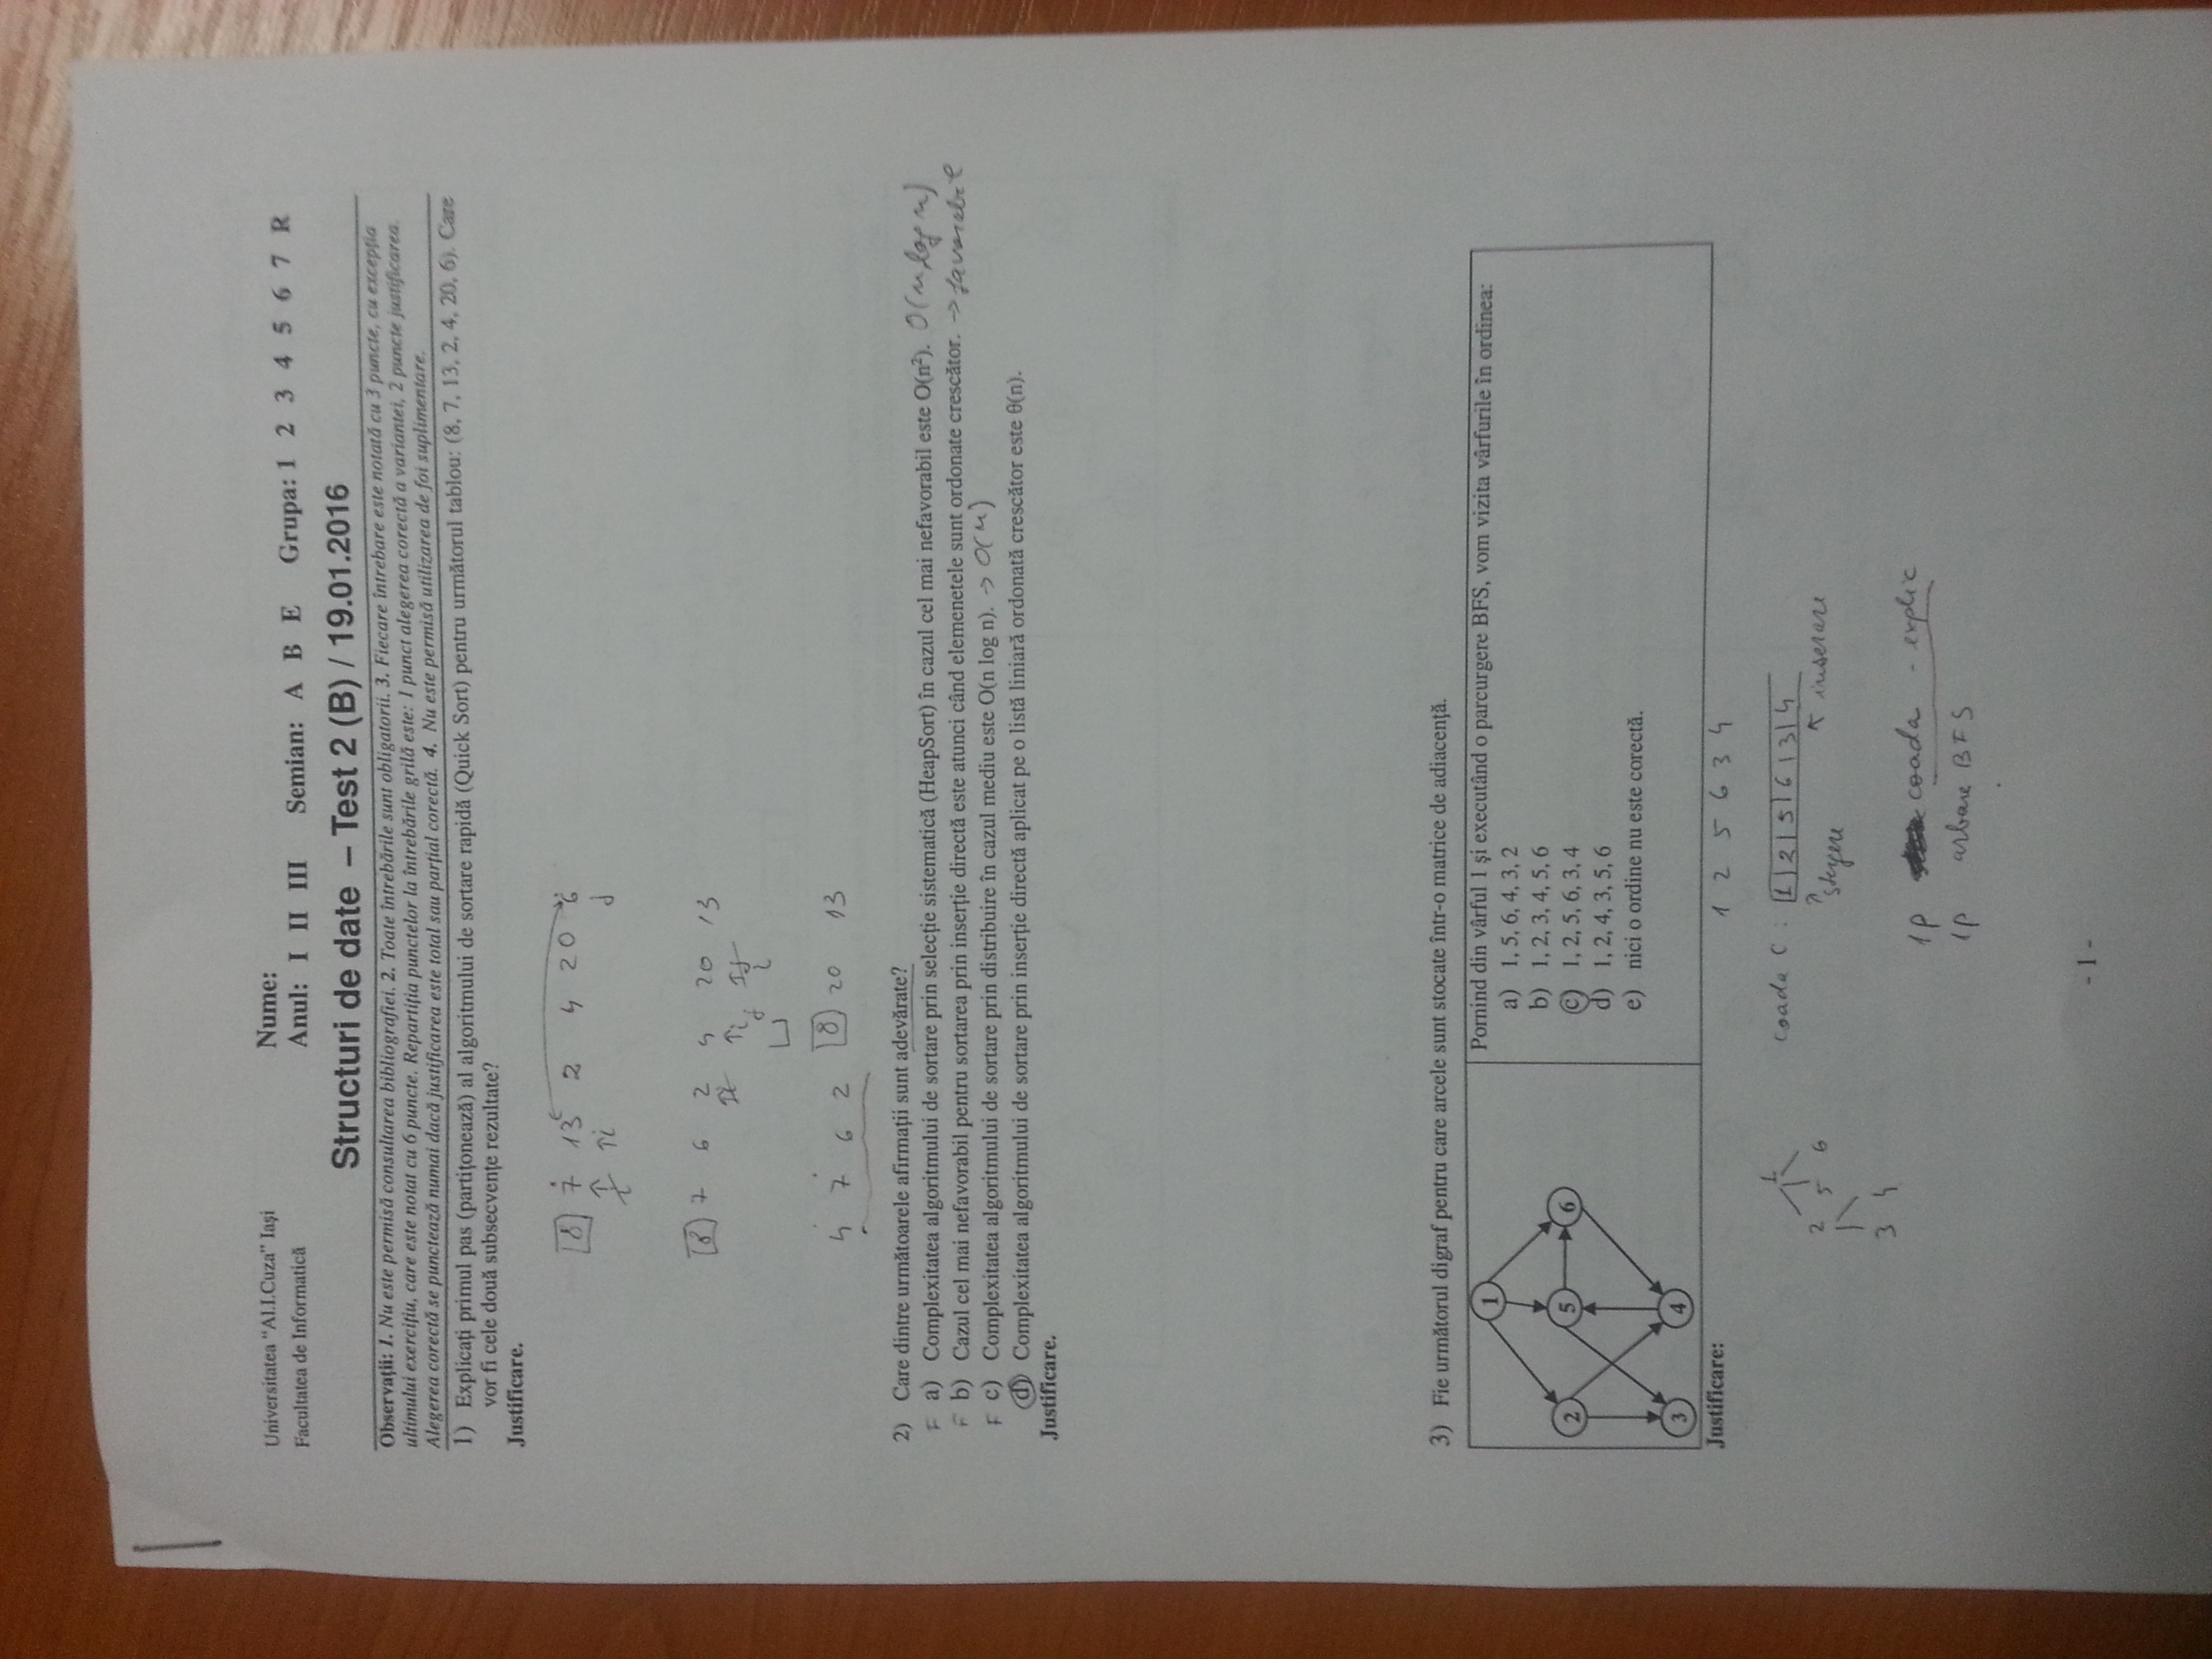 Universitatea "Al.I.Cuza" Iaşi
Facultatea de Informatică
Nume:
Anul: I II III Semian: A B E Grupa: 1 2 3 4 5 6 7 R
Structuri de date – Test 2 (B) / 19.01.2016
Observaţii: 1. Nu este permisă consultarea bibliografiei. 2. Toate întrebările sunt obligatorii. 3. Fiecare întrebare este notată cu 3 puncte, cu excepţia
ultimului exerciţiu, care este notat cu 6 puncte. Repartiţia punctelor la întrebările grilă este: 1 punct alegerea corectă a variantei, 2 puncte justificarea.
Alegerea corectă se punctează numai dacă justificarea este total sau parţial corectă. 4. Nu este permisă utilizarea de foi suplimentare.
1) Explicaţi primul pas (partiţonează) al algoritmului de sortare rapidă (Quick Sort) pentru următorul tablou: (8, 7, 13, 2, 4, 20, 6). Care
vor fi cele două subsecvenţe rezultate?
Justificare.
8 7 13 2 4 20 6
i i j
8 7 6 2 4 20 13
i i j j
i
4 7 6 2 8 20 13
2) Care dintre următoarele afirmaţii sunt adevărate?
F a) Complexitatea algoritmului de sortare prin selecţie sistematică (HeapSort) în cazul cel mai nefavorabil este O(n²). O(n log n)
F b) Cazul cel mai nefavorabil pentru sortarea prin inserţie directă este atunci când elemenetele sunt ordonate crescător. → favorabil
F c) Complexitatea algoritmului de sortare prin distribuire în cazul mediu este O(n log n). → O(n)
d) Complexitatea algoritmului de sortare prin inserţie directă aplicat pe o listă liniară ordonată crescător este θ(n).
Justificare.
3) Fie următorul digraf pentru care arcele sunt stocate într-o matrice de adiacenţă.
1
2 5 6
3 4
Pornind din vârful 1 şi executând o parcurgere BFS, vom vizita vârfurile în ordinea:
a) 1, 5, 6, 4, 3, 2
b) 1, 2, 3, 4, 5, 6
c) 1, 2, 5, 6, 3, 4
d) 1, 2, 4, 3, 5, 6
e) nici o ordine nu este corectă.
Justificare:
1 2 5 6 3 4
1
2 5 6
3 4
coada C : 1 2 5 6 3 4
ştergere inserare
1p coada - explic
1p arbore BFS
- 1 -